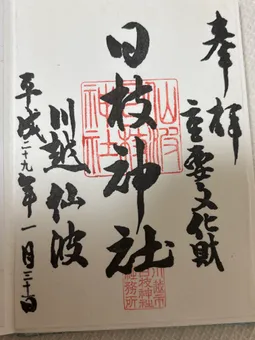 奉拝
重要文化財
日枝神社
川越仙波
平成二十九年一月三十日
仙波
日枝
神社
川越市
日枝神社
社務所